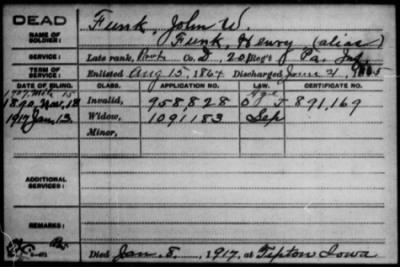 DEAD
Funk, John W.
NAME OF SOLDIER:
Funk, Henry (alias)
SERVICE:
Late rank, Co. D, 201 Reg't Pa. Inf.
TERM OF SERVICE:
Enlisted Aug 15, 1864 Discharged June 21, 1865
DATE OF FILING. CLASS. APPLICATION NO. LAW. CERTIFICATE NO.
1907, Mch 15 Age
1890, Nov. 18 Invalid, 958,828 J 891,169
1917 Jan. 13 Widow, 1091183 Sep
Minor,
ADDITIONAL SERVICES:
REMARKS:
Died Jan. 8, 1917, at Tipton Iowa